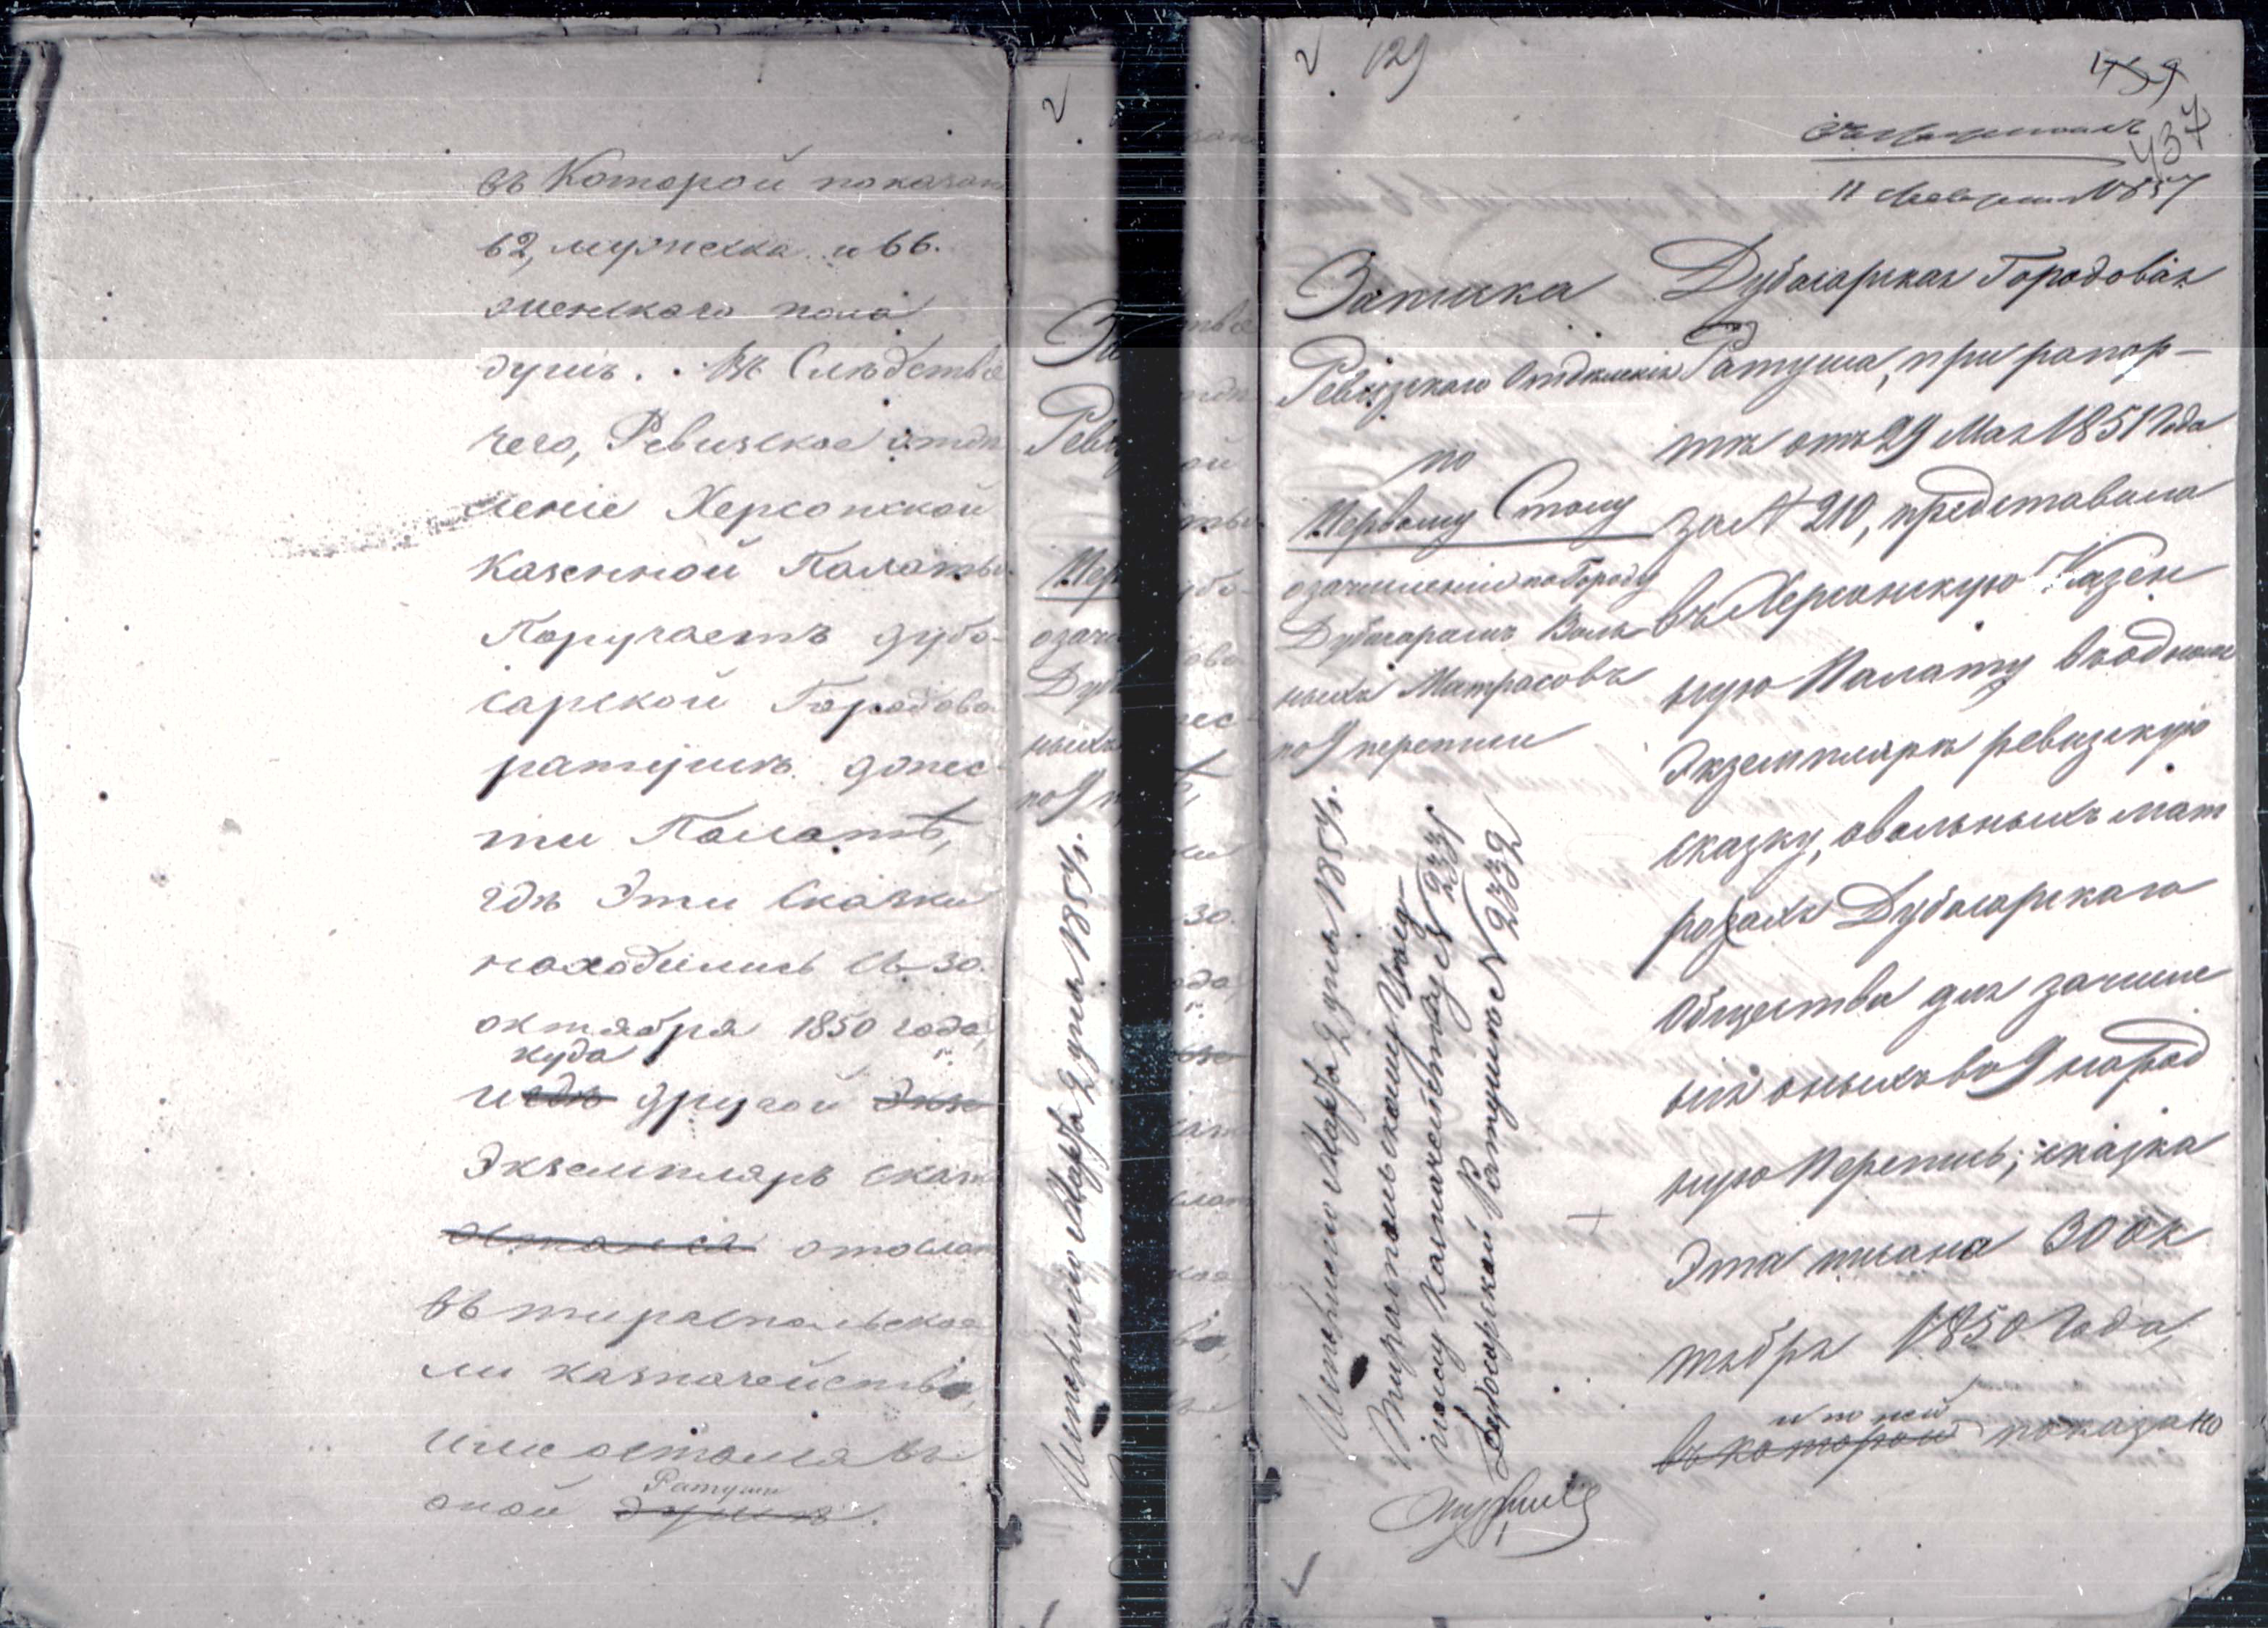 въ Которой показан
62, мужеска и 66.
женскаго пола
душъ. Въ Слѣдствіе
чего, Ревизское отдѣ
леніе Херсонской
Казенной Палаты
Поручаетъ дубо-
сарской Городово
ратушѣ донес-
ти Палатѣ,
гдѣ Эти Сказки
находились съ 30.
октября 1850 года,
куда
и гдѣ другой Экз
Экземпляръ сказ
остался отослан
въ тираспольское
ли казначейство,
или остался въ
Ратуши
оной думѣ.
129
439
437
11 Февраля 1857
Записка
Ревизскаго Отдѣленія
по
Первому Столу
о зачисленіи по Городу
Дубоссарамъ Воль
ныхъ Матросовъ
по 9 переписи
Дубосарская Городовая
Ратуша, при рапор-
тѣ отъ 29 Мая 1851 Года
за № 210, представила
въ Херсонскую Казен
ную Палату въ одномъ
Экземплярѣ ревизскую
сказку, о вольныхъ мат
розахъ Дубосарскаго
Общества для зачисле
нія оныхъ въ 9 народ
ную Перепись; сказка
Эта писана 30 ок
тября 1850 Года,
и по ней
въ которой показано
Исполнено Марта 2 дня 1857 г.
Тираспольскому Уѣзд-
ному Казначейству № 2331
Дубосарской Ратушѣ № 2332